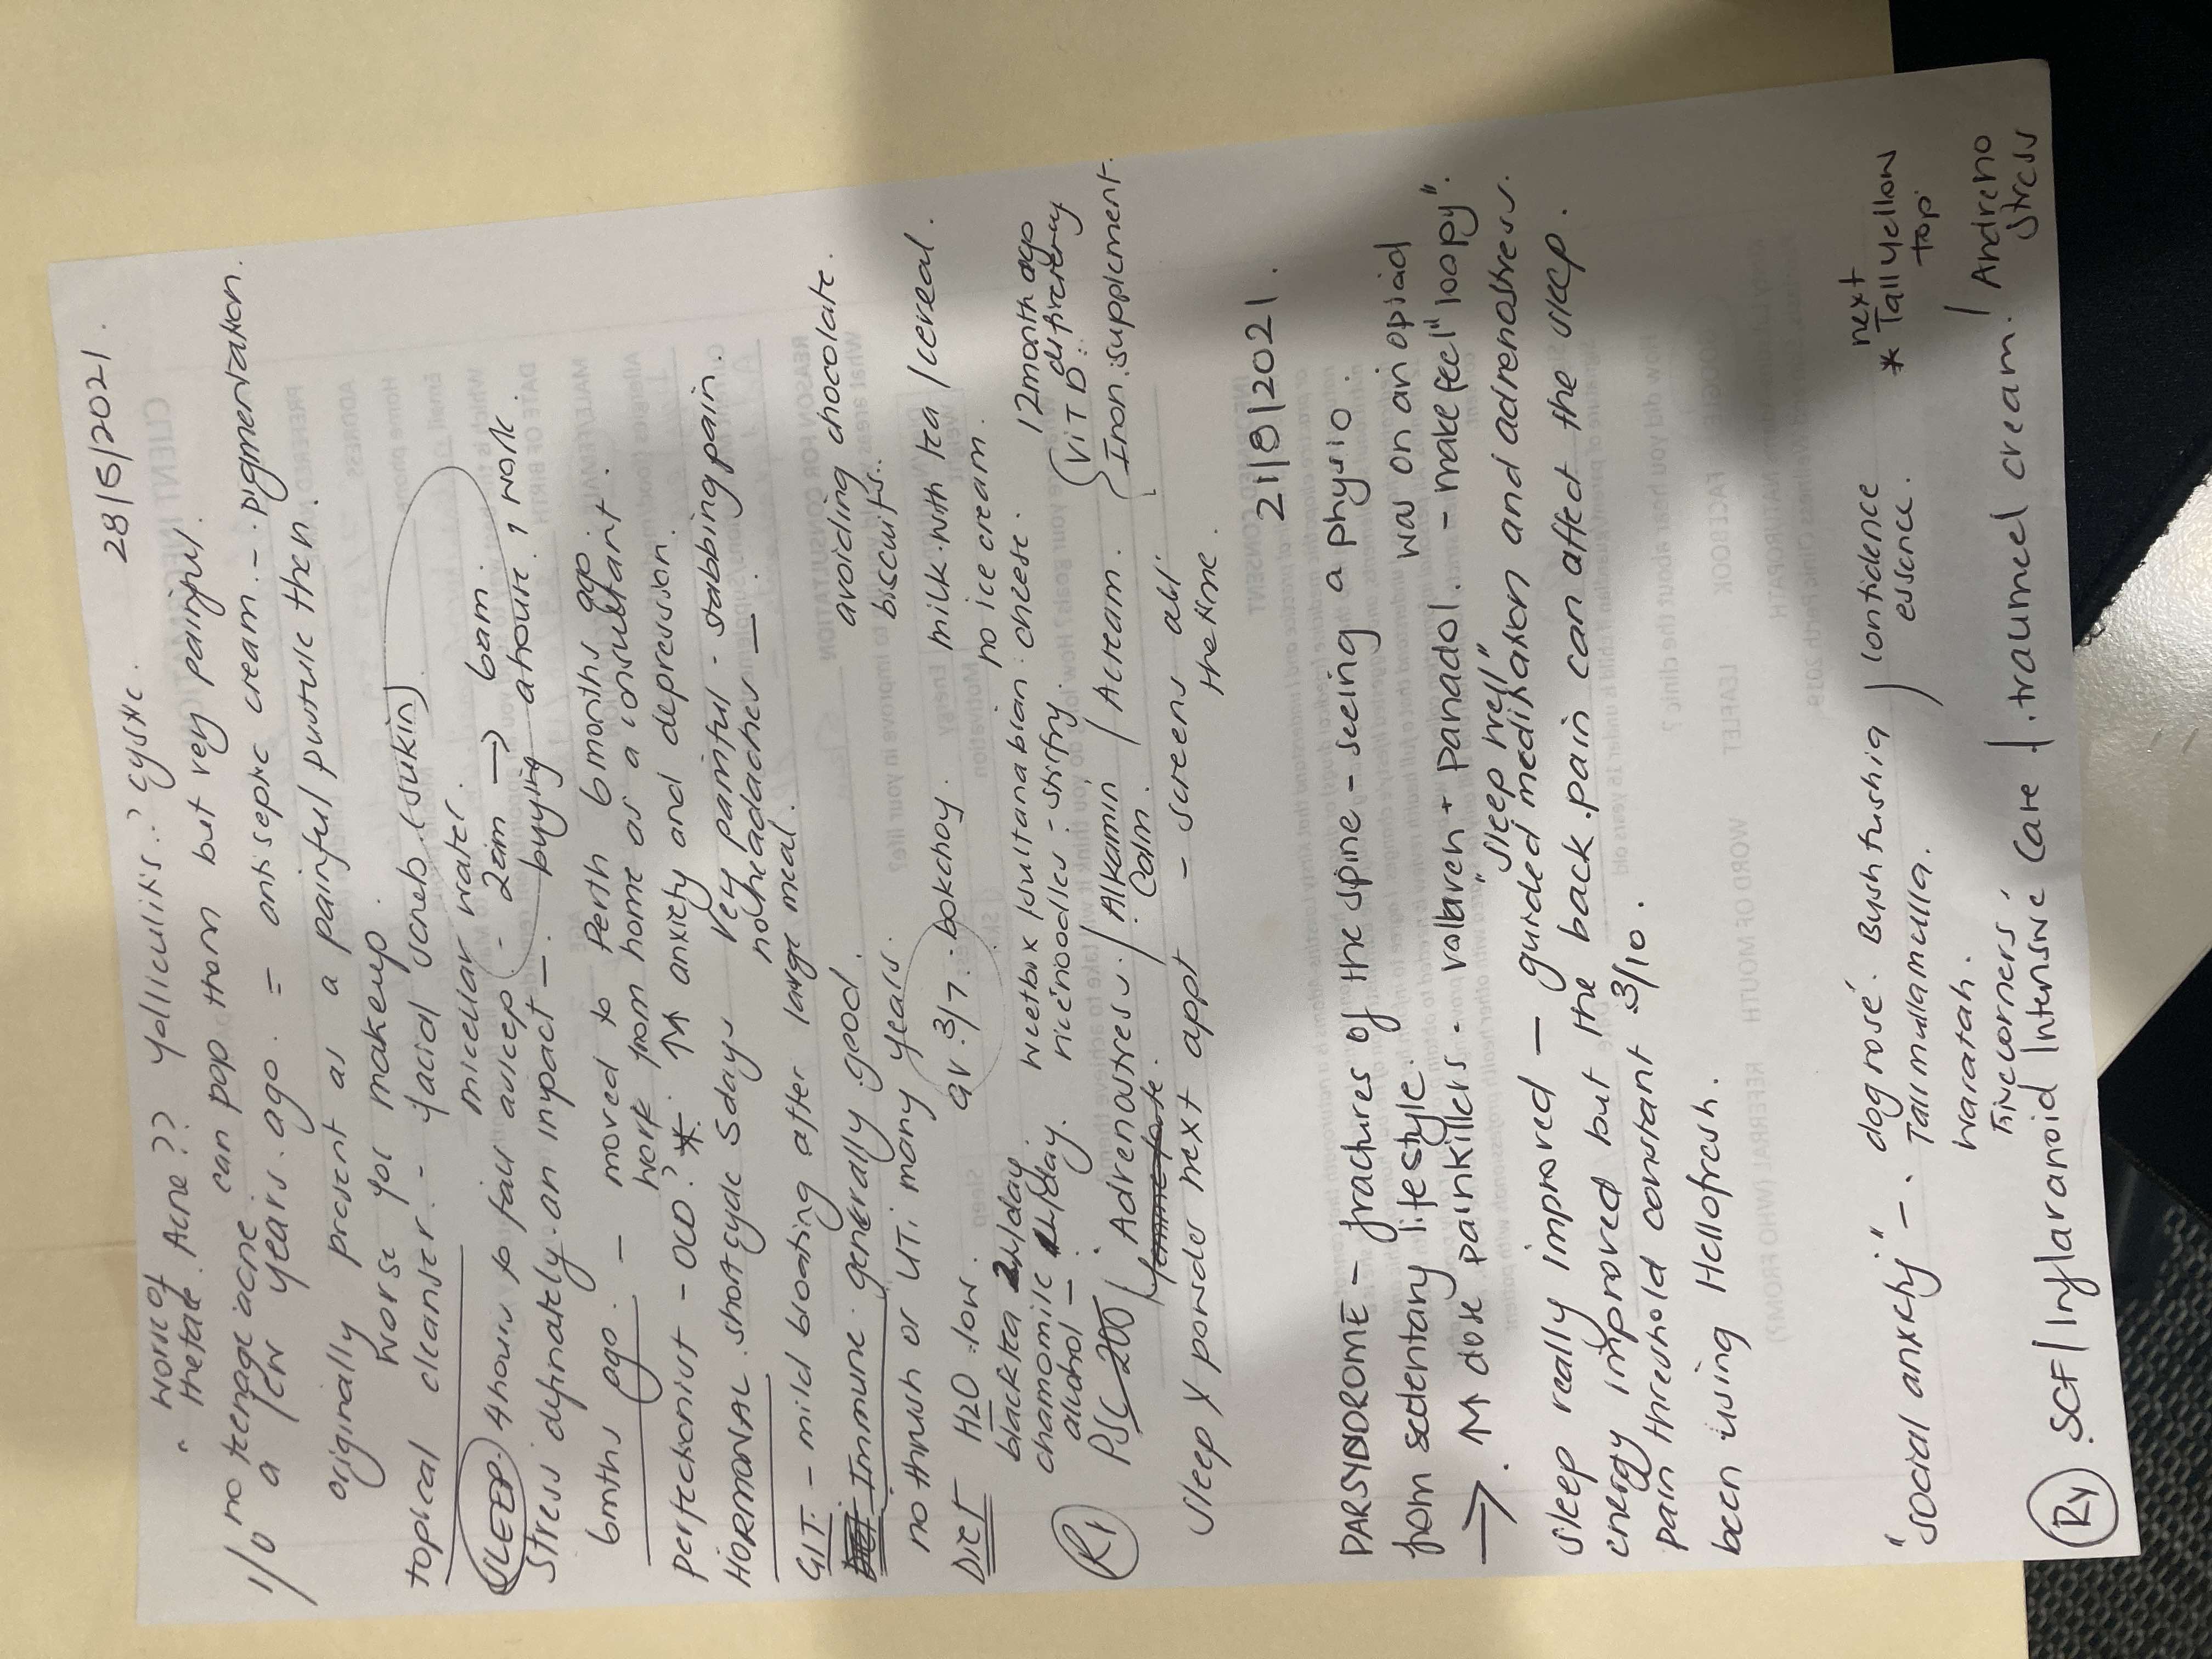 28/5/2021.
" worse of the face. Acne?? folliculitis.? cystic.
1/0 no teenage acne can pop them but very painful.
a few years. ago. = antiseptic cream. - pigmentation.
originally present as a painful pustule then.
worse for makeup.
topical cleanser. - facial scrub. (sukin)
micellar water.
SLEEP. 4 hours to fall asleep. - 2am → 6am.
Stress definately. an inpact - buying a house. 1 work.
6mths ago. - moved to Perth 6 months ago.
work from home as a consultant.
perfectionist - OCD? *. ↑↑ anxiety and depression.
HORMONAL. short cycle 5 days very painful - stabbing pain.
no headaches -
GIT. - mild bloating after large meal. avoiding chocolate.
biscuits..
Immune. generally good.
no thrush or UTi many years. milk with tea / cereal.
DIET H2O low. av. 3/7. bokchoy. no ice cream.
black tea 2/day. weetbix sultana bran. cheese. 12 month ago
chamomile /day. rice noodles. - stirfry. Vit D. deficiency
alcohol - Iron. supplement.
R1 PSC 200 / Adrenostress. / Alkamin Calm. / A cream.
femme forte.
Sleep X powder next appt - screens all
the time.
21/8/2021.
PARSYNDROME - fractures of the spine - seeing a physio.
from sedentary lifestyle. was on an opiod
→. ↑↑ dose painkillers - voltaren + panadol. - make feel "loopy".
"sleep well"
sleep really improved - guided meditation and adrenostress.
energy improved but the back pain can affect the sleep.
pain threshold constant 3/10.
been using Hellofresh.
"social anxiety" - . dog rose. Bush fushia / confidence essence. * next Tall yellow top
Tall mulla mulla.
waratah.
Five corners.
Rx SCF / Inflaranoid Intensive Care /. traumeel cream. / Andreno stress